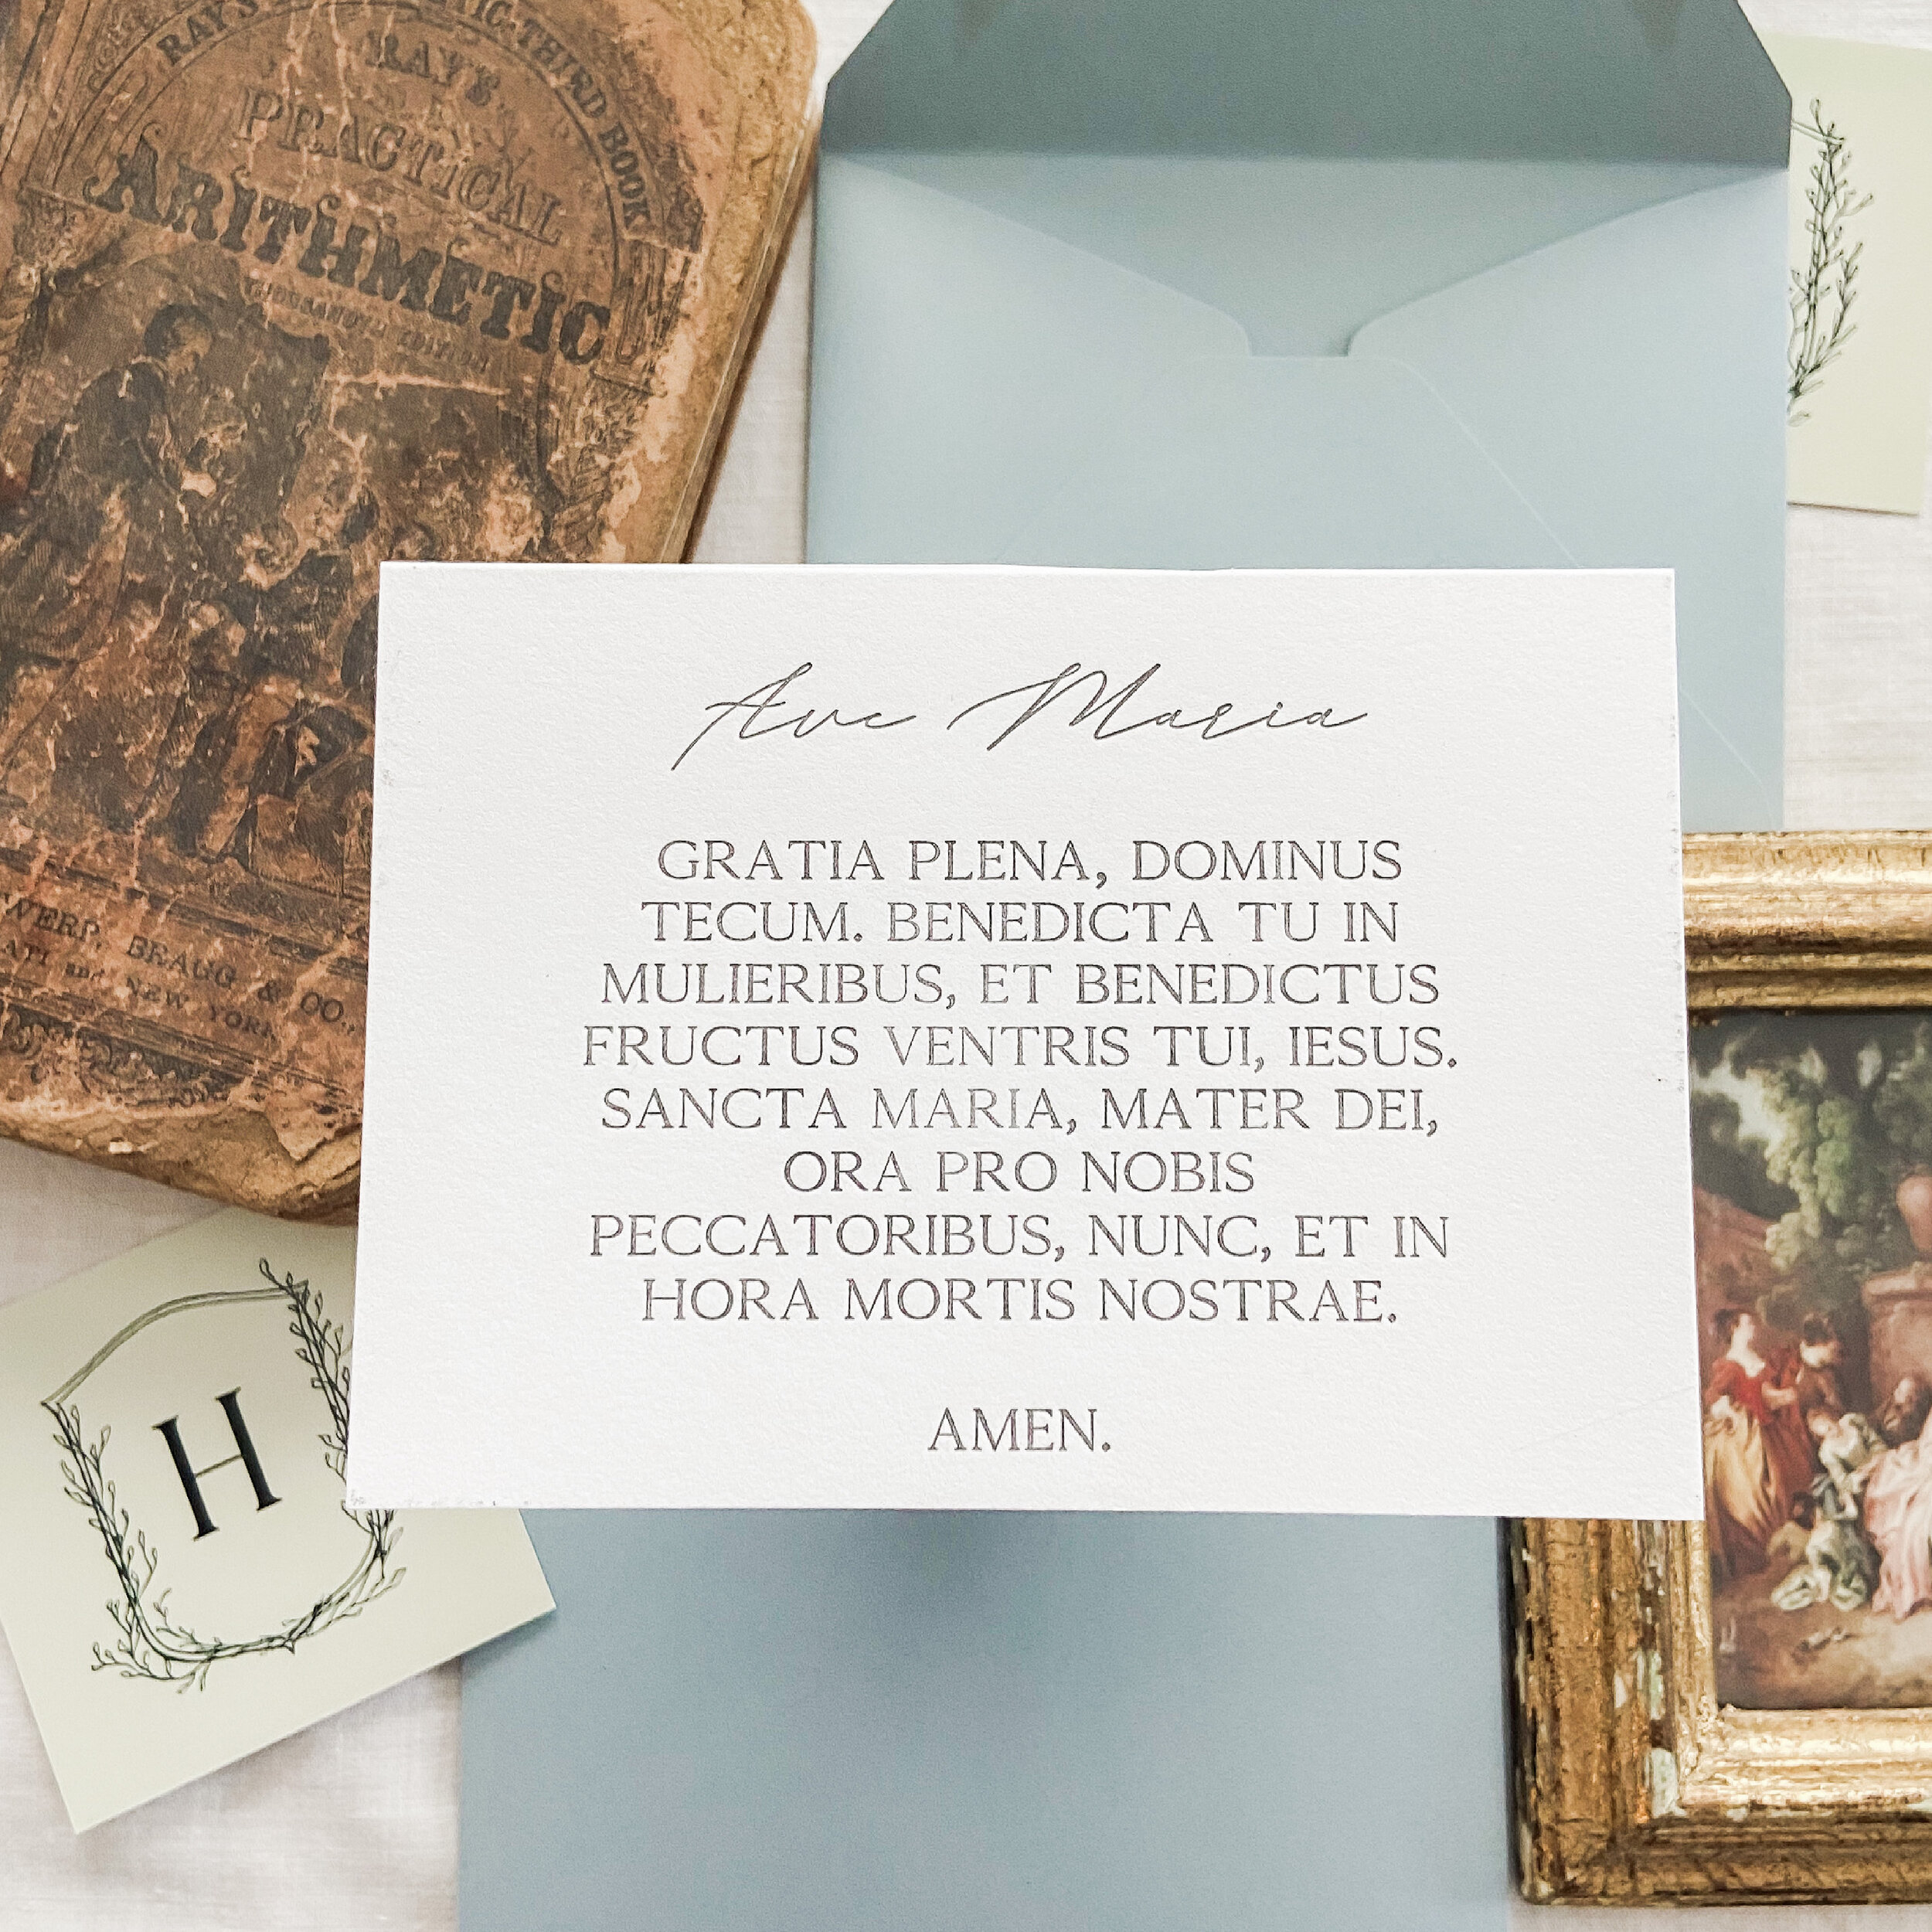 RAY'S
THIRD BOOK
RAY'S
PRACTICAL
ARITHMETIC
Ave Maria
GRATIA PLENA, DOMINUS
TECUM. BENEDICTA TU IN
MULIERIBUS, ET BENEDICTUS
FRUCTUS VENTRIS TUI, IESUS.
SANCTA MARIA, MATER DEI,
ORA PRO NOBIS
PECCATORIBUS, NUNC, ET IN
HORA MORTIS NOSTRAE.
AMEN.
BRAGG & CO.,
and NEW YORK
H